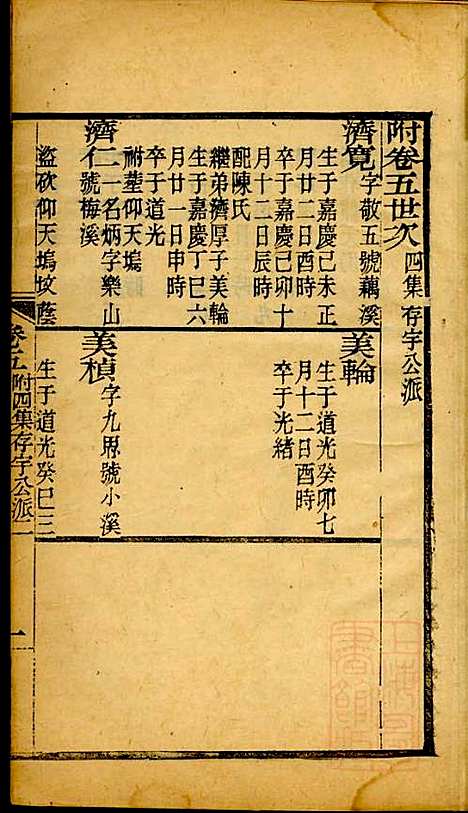 附卷五世次 四集 存字公派
濟寬 字敬五號藕溪
生于嘉慶己未正
月廿二日酉時
卒于嘉慶己卯十
月十二日辰時
配陳氏
繼弟濟厚子美輪
生于嘉慶丁巳六
月廿一日申時
卒于道光
祔塟仰天塢
濟仁 一名炳字樂山
號梅溪
盜砍仰天塢坟蔭
美輪
生于道光癸卯七
月十二日酉時
卒于光緒
美楨 字九恩號小溪
生于道光癸巳三
卷五 附四集存字公派
一